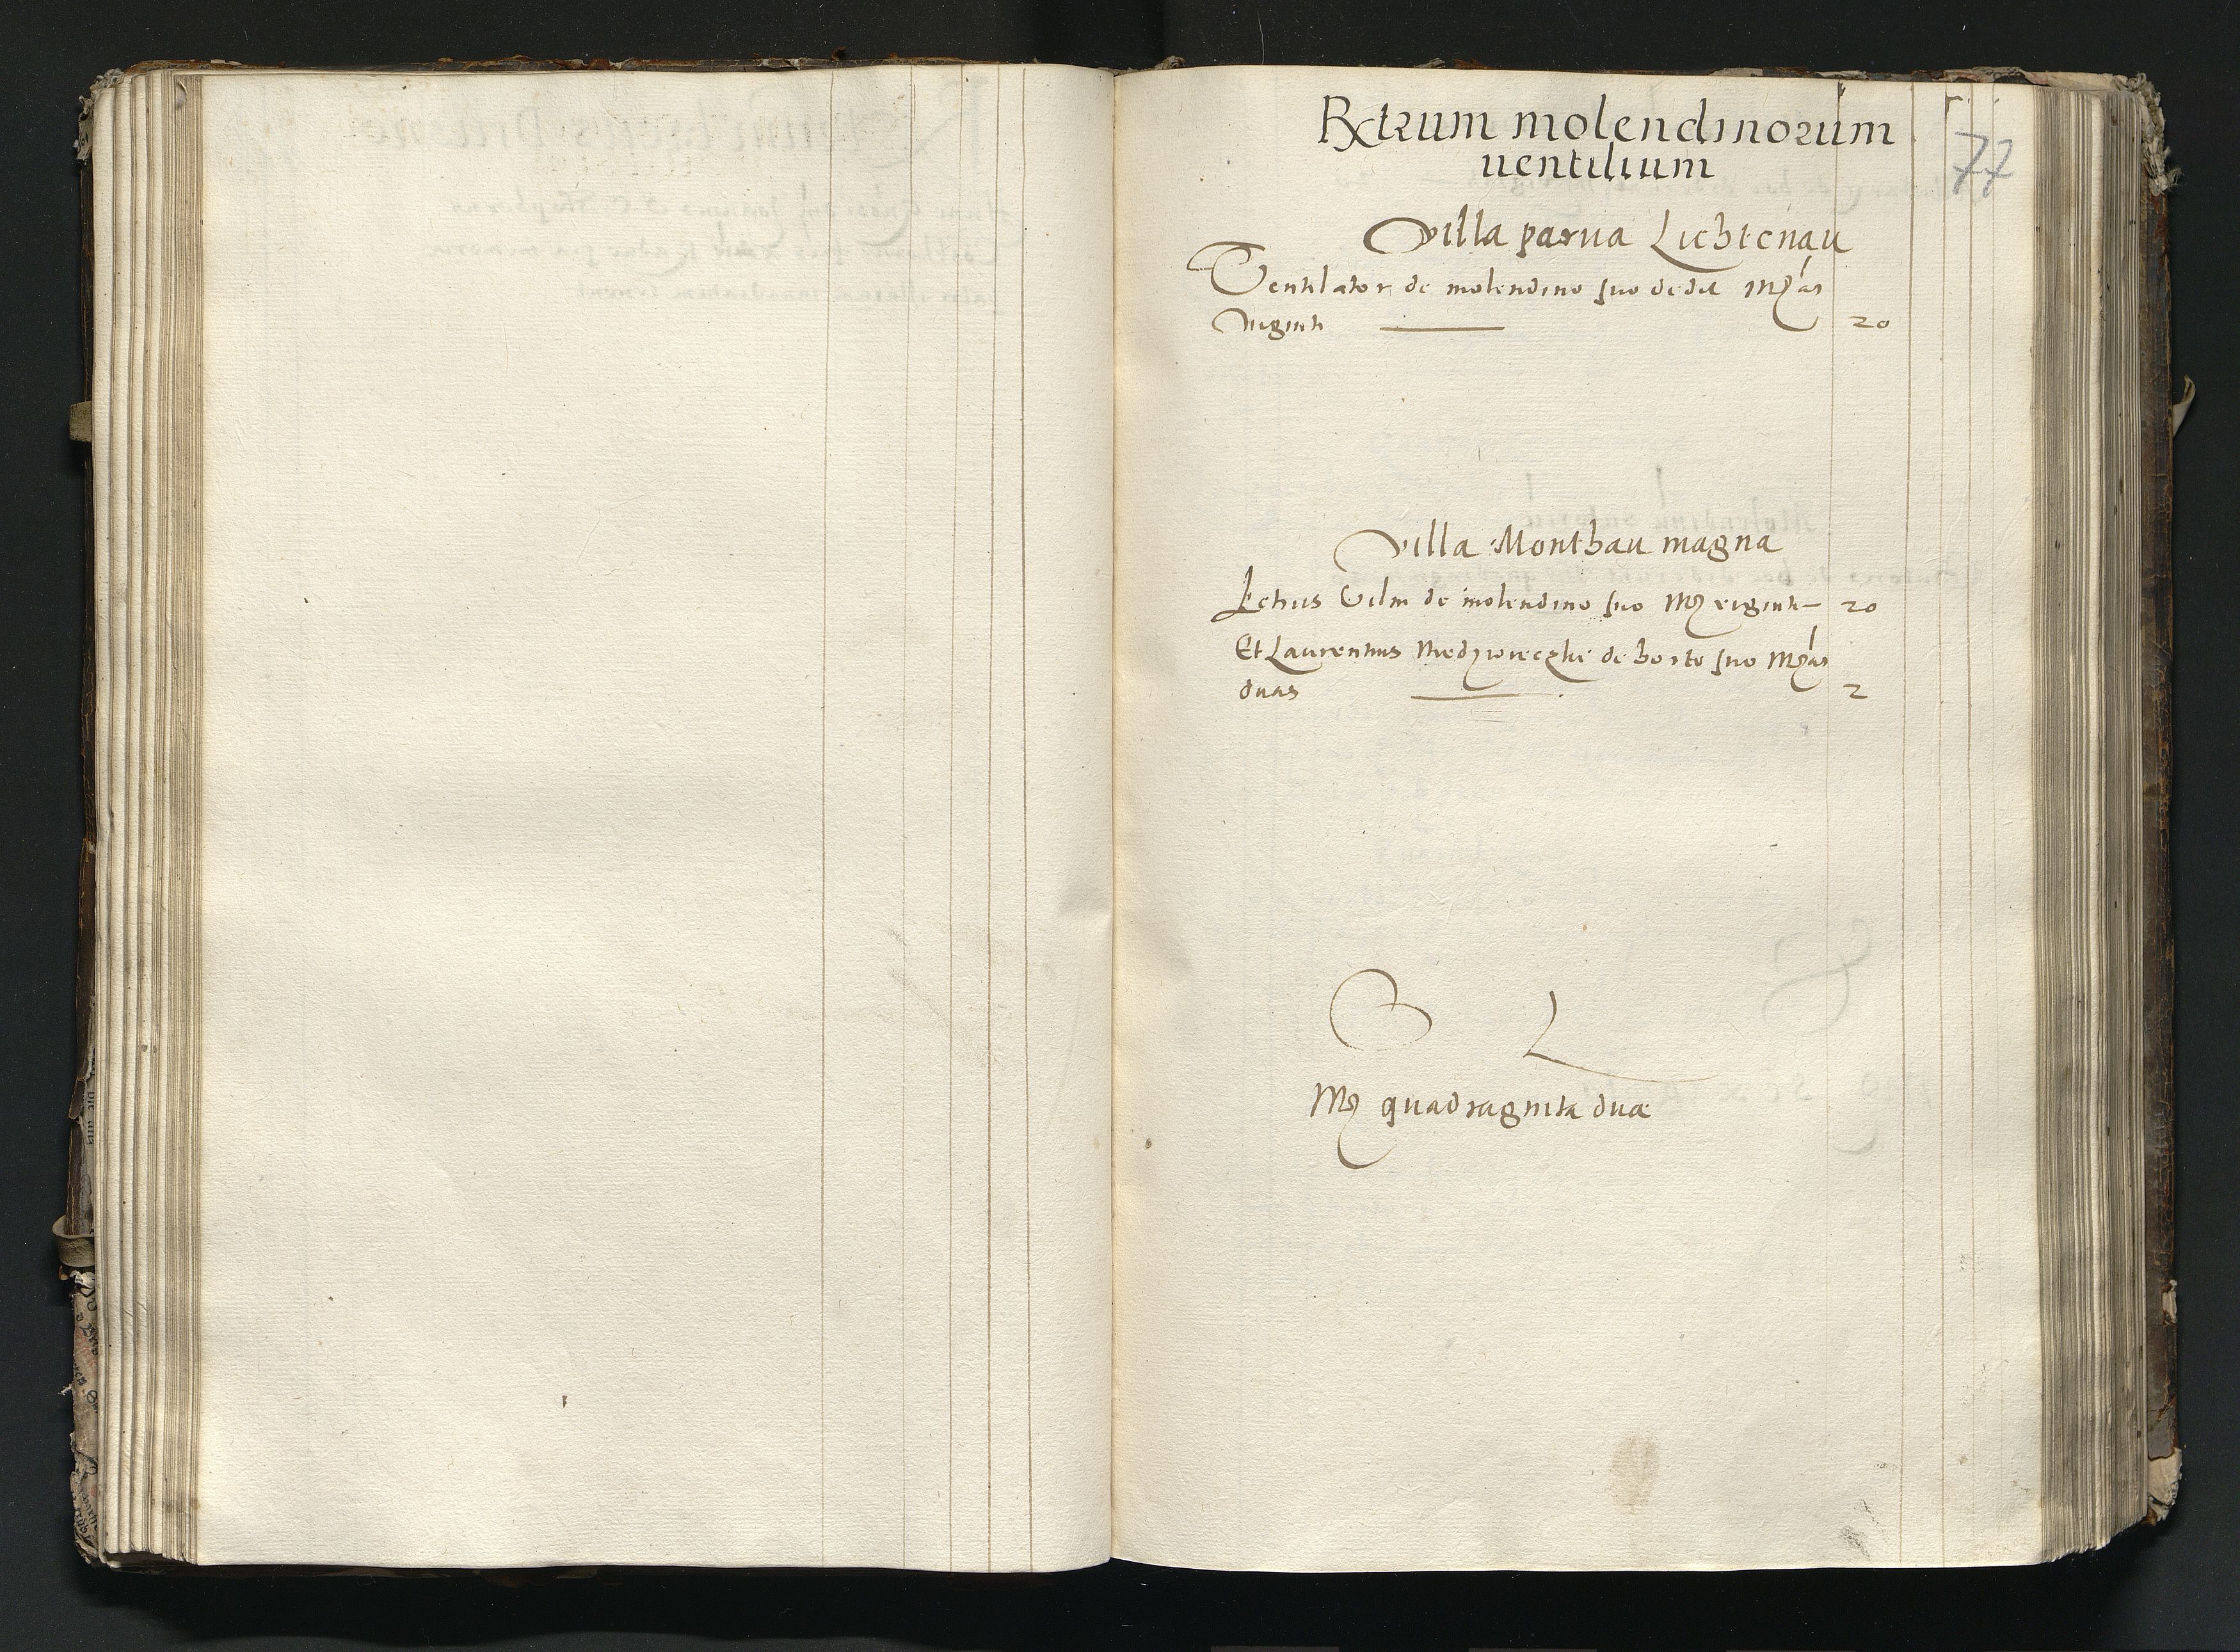 Rctrum molendinorum
uentilium
77
Villa parua Lichtenau
Ventilator de molendino suo dedit Mcas
viginti 20
Villa Monthau magna
Petrus Vilm de molendino suo Mc viginti 20
Et Laurentius de horto suo Mcas
duas 2
Mc quadraginta duæ